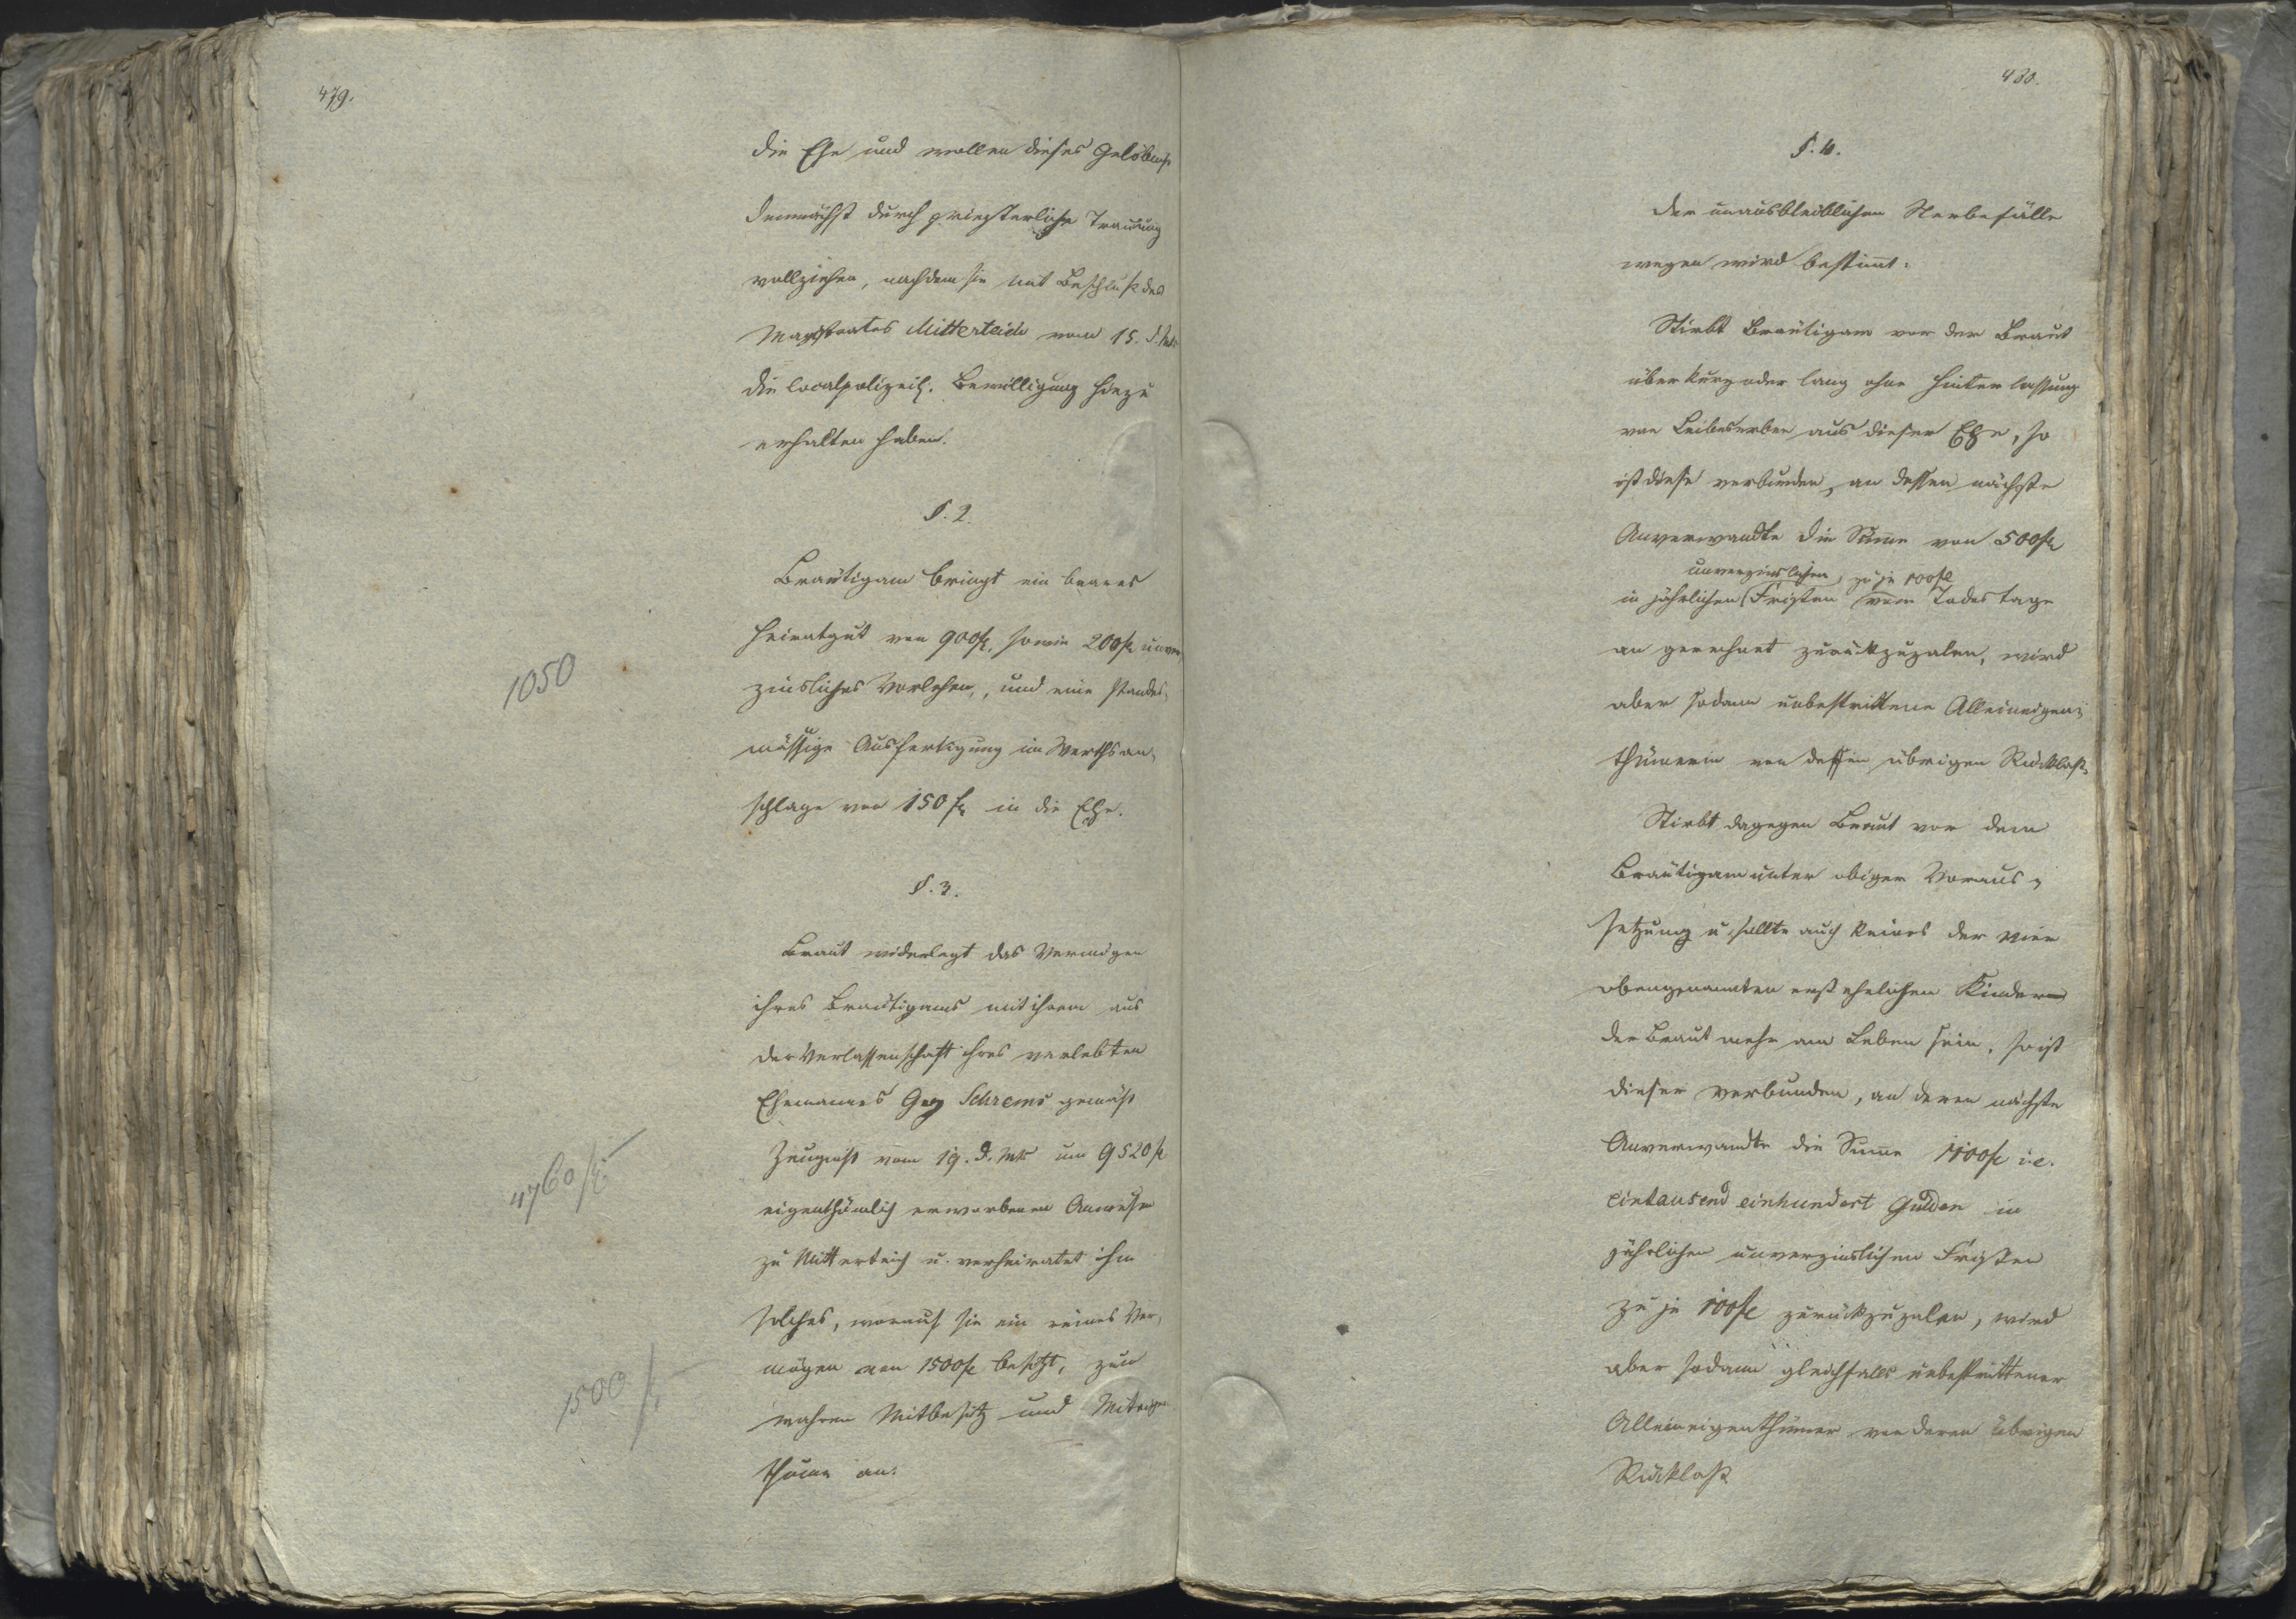 479.
die Ehe und wollen dieses Gelöbniß
demnächst durch priesterliche Trauung
vollziehen, nachdem sie mit Beschluß des
Magistrates Mitterteich vom 15. d. Mts
die localpolizeil. Bewilligung hiezu
erhalten haben.
§. 2.
Bräutigam bringt ein baares
Heiratgut von 900 fl, sowie 200 fl unver-
zinsliches Vorlehen, und eine standes-
mässige Ausfertigung im Werthsan-
schlage von 150 fl in die Ehe.
1050
§. 3.
Braut widerlegt das Vermögen
ihres Bräutigams mit ihrem aus
der Verlassenschaft ihres verlebten
Ehemannes Gg Schrems gemäß
Zeugniß vom 19. d. Mts um 9520 fl
eigenthümlich erworbenen Anwesen
zu Mitterteich u. verheiratet ihm
solches, worauf sie ein reines Ver-
mögen von 1500 fl besitzt, zum
wahren Mitbesitz und Miteigen-
thume an.
4760 fl
1500 fl
480.
§. 4.
Der unausbleiblichen Sterbefälle
wegen wird bestimmt:
Stirbt Bräutigam vor der Braut
über kurz oder lang ohne Hinterlassung
von Leibeserben aus dieser Ehe, so
ist diese verbunden, an dessen nächste
Anverwandte die Summe von 500 fl
unverzinslichen, zu je 100 fl
in jährlichen Fristen vom Todestage
an gerechnet zurückzuzalen, wird
aber sodann unbestrittene Alleineigen-
thümerin von dessen übrigen Rücklaß.
Stirbt dagegen Braut vor dem
Bräutigam unter obiger Voraus-
setzung u. sollte auch keines der vier
obengenannten erstehelichen Kinder
der Braut mehr am Leben sein, so ist
dieser verbunden, an deren nächste
Anverwandte die Summe 1100 fl i.e.
eintausend einhundert Gulden in
jährlichen unverzinslichen Fristen
zu je 100 fl zurückzuzalen, wird
aber sodann gleichfalls unbestrittener
Alleineigenthümer von deren übrigen
Rücklaß